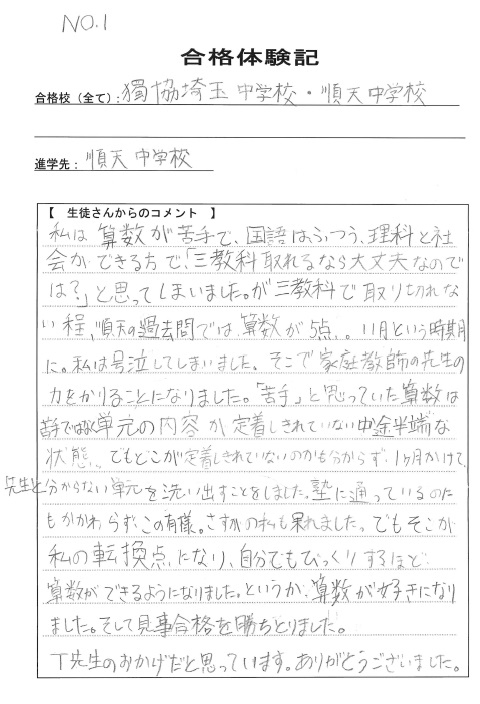 NO.1
合格体験記
合格校（全て）：獨協埼玉中学校・順天中学校
進学先：順天中学校
【　生徒さんからのコメント　】
私は算数が苦手で、国語はふつう、理科と社
会ができる方で、「三教科取れるなら大丈夫なので
は？」と思ってしまいました。が三教科で取り切れな
い程、順天の過去問では算数が5点。。11月という時期
に。私は号泣してしまいました。そこで家庭教師の先生の
力をかりることになりました。「苦手」と思っていた算数は
苦手ではなく単元の内容が定着しきれていない中途半端な
状態。でもどこが定着しきれていないのかも分からず、1ヶ月かけて、
先生と分からない単元を洗い出すことをしました。塾に通っているのに
もかかわらず、この有様。さすがの私も呆れました。でもそこが
私の転換点になり、自分でもびっくりするほど
算数ができるようになりました。というか、算数が好きになり
ました。そして見事合格を勝ちとりました。
T先生のおかげだと思っています。ありがとうございました。